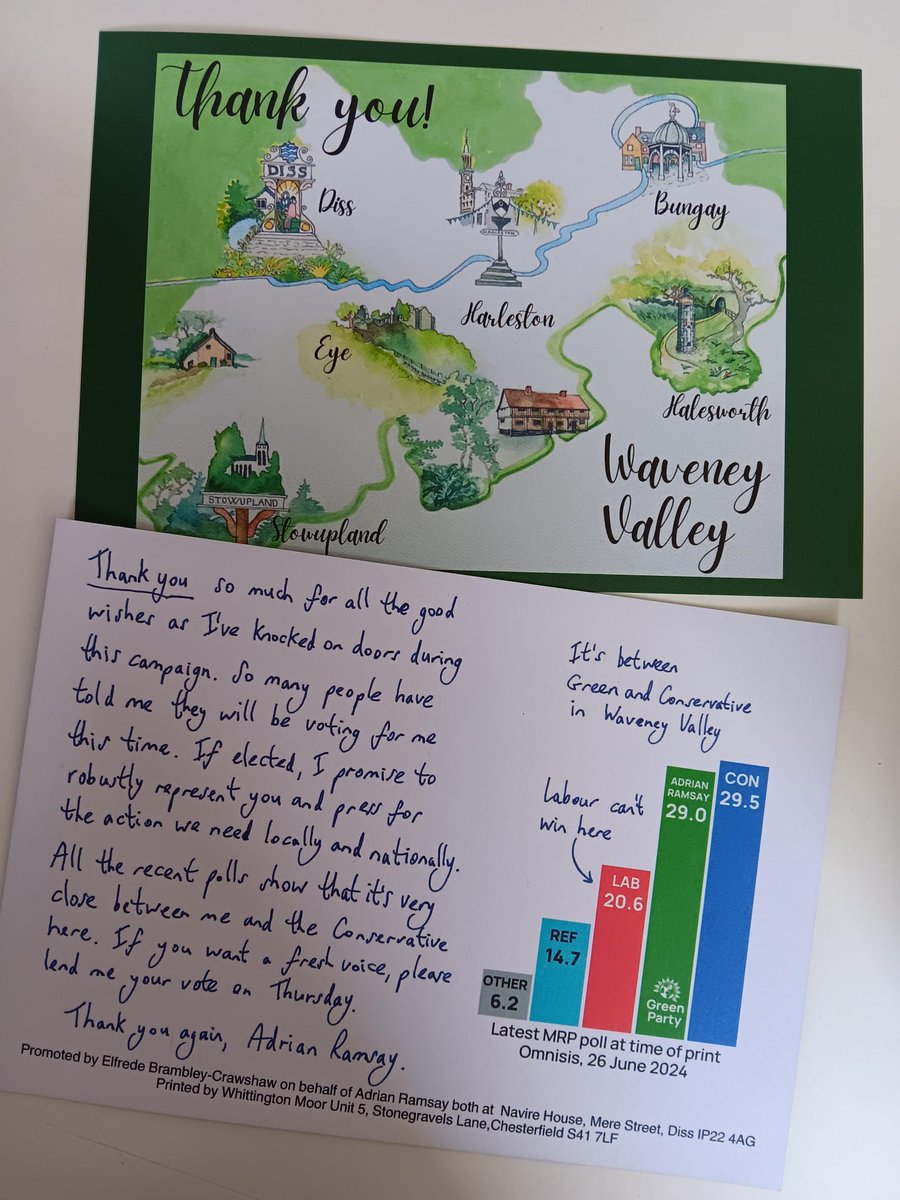 Thank you!
DISS
Diss
HARLESTON
Harleston
Bungay
Eye
Halesworth
STOWUPLAND
Stowupland
Waveney
Valley
Thank you so much for all the good
wishes as I've knocked on doors during
this campaign. So many people have
told me they will be voting for me
this time. If elected, I promise to
robustly represent you and press for
the action we need locally and nationally.
All the recent polls show that it's very
close between me and the Conservative
here. If you want a fresh voice, please
lend me your vote on Thursday.
Thank you again, Adrian Ramsay.
It's between
Green and Conservative
in Waveney Valley
Labour can't
win here
OTHER
6.2
REF
14.7
LAB
20.6
ADRIAN
RAMSAY
29.0
Green
Party
CON
29.5
Latest MRP poll at time of print
Omnisis, 26 June 2024
Promoted by Elfrede Brambley-Crawshaw on behalf of Adrian Ramsay both at Navire House, Mere Street, Diss IP22 4AG
Printed by Whittington Moor Unit 5, Stonegravels Lane,Chesterfield S41 7LF